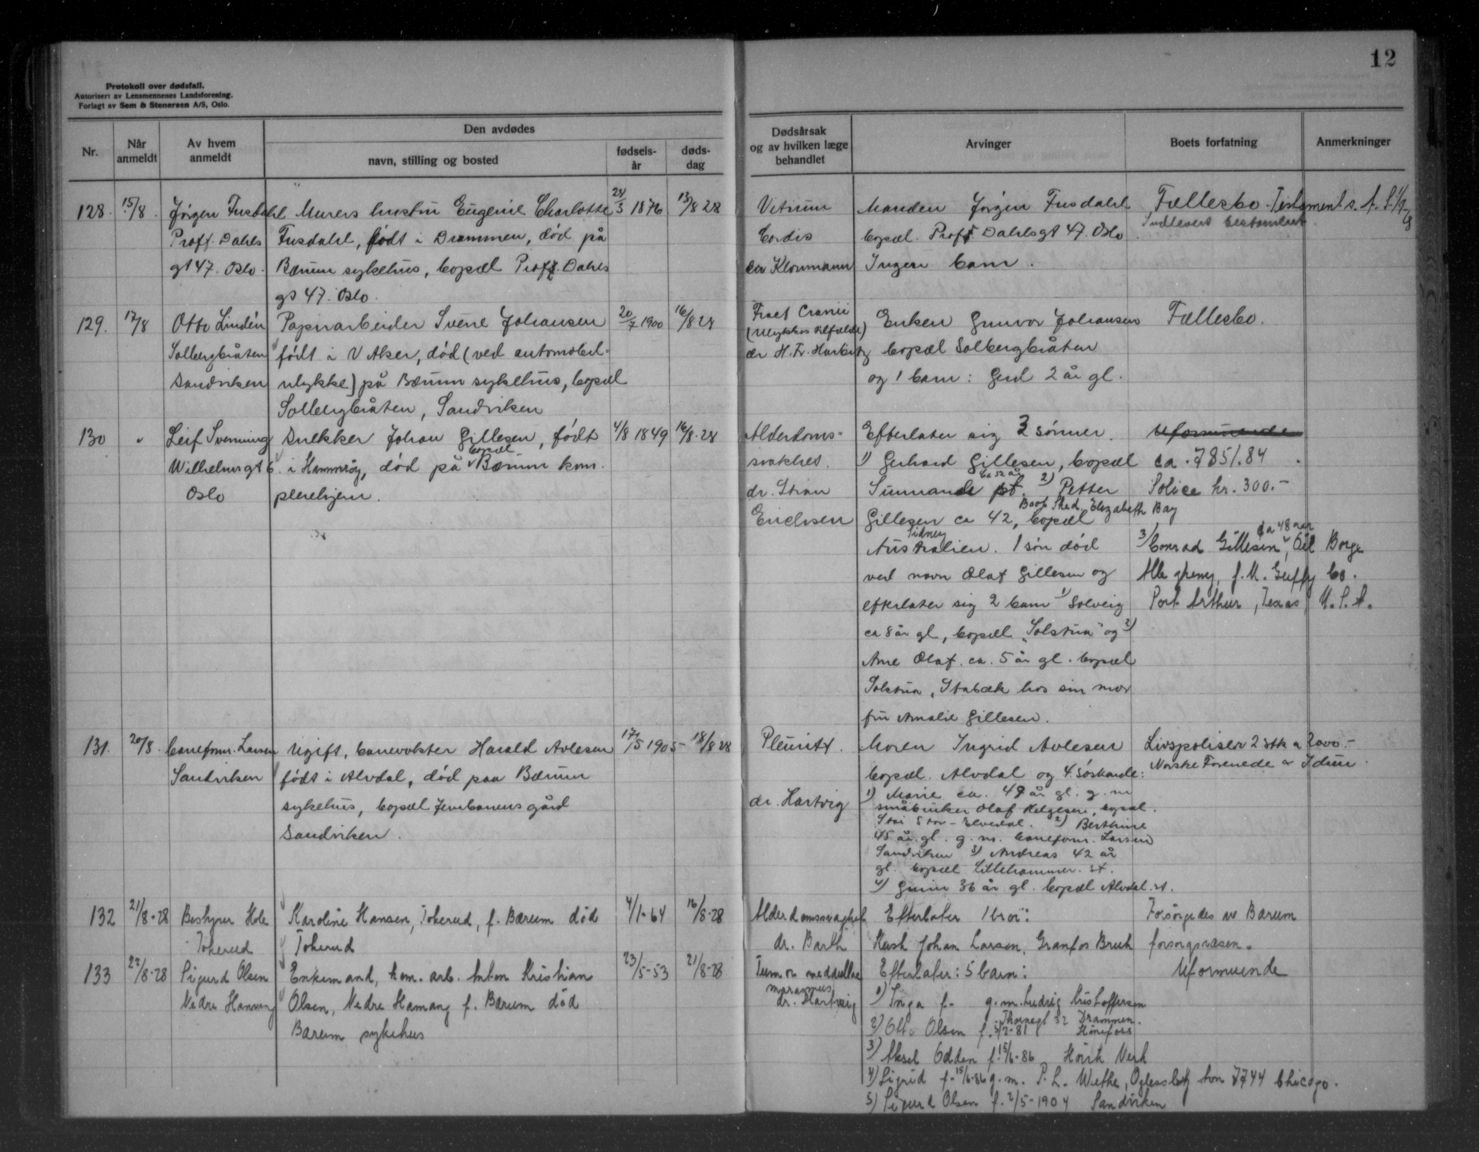 12
Protokoll over dødsfall.
Autorisert av Lensmennenes Landsforening.
Forlagt av Sem & Stenersen A/S, Oslo.
Nr.
Når anmeldt
Av hvem anmeldt
Den avdødes
navn, stilling og bosted
fødsels-år
døds-dag
Dødsårsak og av hvilken læge behandlet
Arvinger
Boets forfatning
Anmerkninger
128. 15/8. Jørgen Fusdahl Murers hustru Eugenie Charlotte 24/3 1876 13/8 28
Proff. Dahls Fusdahl, født i Drammen, død på
gt 47. Oslo. Bærum sykehus, bopæl Proff. Dahls
gt 47. Oslo.
Vitium
Cordis
dr Kloumann
Manden Jørgen Fusdahl
bopæl. Proff Dahlsgt 47. Oslo
Ingen barn.
Fællesbo. Testament
129. 17/8 Otto Lindén Papirarbeider Sverre Johansen 20/7 1900 16/8 28
Solbergbråten født i V Aker, død (ved automobil-
Sandviken ulykke) på Bærum sykehus, bopæl
Solbergbråten, Sandviken
Fract Cranii
(Ulykkestilfælde)
dr H. Fr. Harbitz
Enken Gunvor Johansen
bopæl Solbergbråten
og 1 barn: Gerd 2 år gl.
Fællesbo.
130 " Leif Svenning Snekker Johan Gillesen, født 4/8 1849 16/8-28
Wilhelmsgt 6. i Hammerøy, død på bopæl Bærum kom.
Oslo pleiehjem.
Alderdoms-
svakhet.
dr. Stian
Erichsen
Efterlater sig 3 sønner.
1) Gerhard Gillesen, bopæl
Sunnande ca 52 år 2) Petter
Gillesen ca 42, bopæl
Boot Shed, Elizabeth Bay
Sidney
Australien. 1 søn død
ved navn Olaf Gillesen og
efterlater sig 2 barn 1) Solveig
ca 8 år gl, bopæl "Solstua" og 2)
Arne Olaf. ca. 5 år gl. bopæl
Solstua, Stabæk hos sin mor
fru Amalie Gillesen.
Uformuende
ca. 7851.84
Police kr. 300.-
3) Conrad Gillesen ca 48 aar, Oil Barge
Allegheny, J. M. Guffy Co.
Port Arthur, Texas, U.S.A.
131. 20/8 Baneform. Larsen Ugift, banevokter Harald Avlesen 17/5 1905- 18/8 28
Sandviken født i Alvdal, død paa Bærum
sykehus, bopæl Jernbanens gård
Sandviken.
Pleuritt.
dr. Hartvig
Moren Ingrid Avlesen
bopæl. Alvdal og 4 søskende:
1) Marie ca. 49 år gl. g. m
småbruker Olaf Helgesen, bopæl.
Stai Stor-Elvedal. 2) Berthine
45 år. gl. g. m. baneform. Larsen
Sandviken 3) Andreas 42 år
gl. bopæl Lillehammer. st.
4) 36 år gl. bopæl Alvdal. st.
Livspoliser 2 stk a 2000.-
Norske Forenede og Idun.
132 21/8-28 Bestyrer Hole Karoline Hansen, Tokerud, f. Bærum død 4/1-64 16/8-28
Tokerud Tokerud
Alderdomssvaghet
dr. Barth
Efterlater 1 bror:
Husb Johan Larsen, Granfos Bruk
Forsørgedes av Bærum
forsorgsvæsen.
133 22/8-28 Sigurd Olsen Enkemand, kom. arb. Anton Kristian 23/5-53 21/8-28
Nedre Hamang Olsen, Nedre Hamang f. Bærum død
Bærum sykehus
Tumor medullae
dr. Hartvig
Efterlater: 5 barn:
1) Inga f. g.m. Ludvig Kristoffersen
Thornegt 32 Drammen.
2) Otto Olsen f. 3/2-81 Hønefoss
3) Aksel Odden f. 15/6-86 Høvik Verk
4) Sigrid f. 15/6-86 g.m. P. L. Wethe, 7744 Chicago.
5) Sigurd Olsen f. 2/5-1904 Sandviken
Uformuende